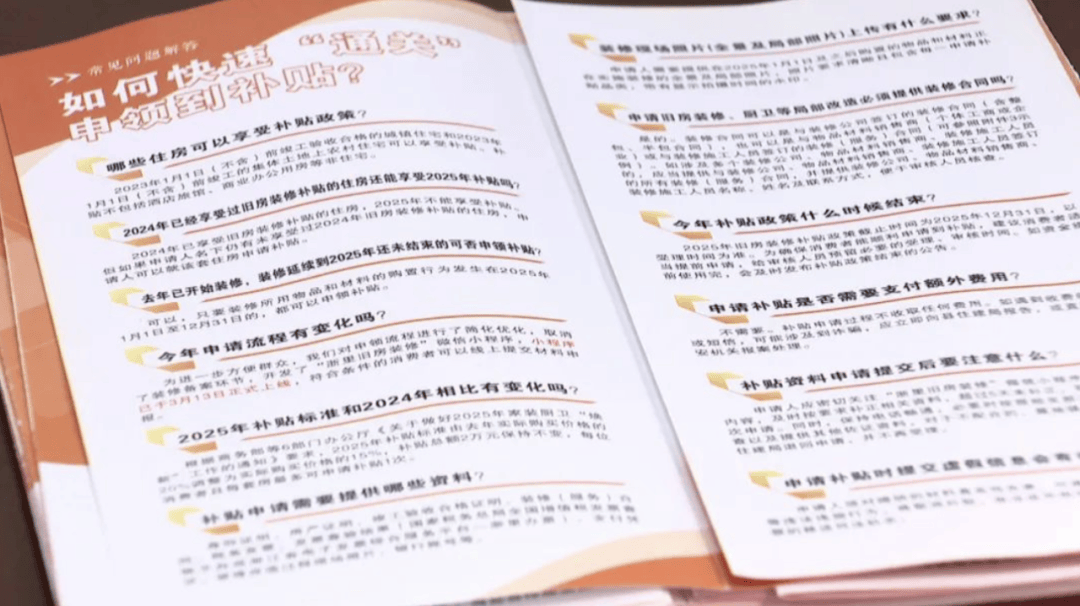 常见问题解答
如何快速“通关”
申领到补贴?
哪些住房可以享受补贴政策?
2023年1月1日(不含)前竣工验收合格的城镇住宅和2023年
1月1日(不含)前竣工的集体土地上农村住宅可以享受补贴。补
贴不包括酒店旅馆、商业办公用房等非住宅。
2024年已经享受过旧房装修补贴的住房还能享受2025年补贴吗?
2024年已享受旧房装修补贴的住房,2025年不能享受补贴。
但如果申请人名下仍有未享受过2024年旧房装修补贴的住房,申
请人可以就该套住房申请补贴。
去年已开始装修,装修延续到2025年还未结束的可否申领补贴?
可以,只要装修所用物品和材料的购置行为发生在2025年
1月1日至12月31日的,都可以申领补贴。
今年申请流程有变化吗?
为进一步方便群众,我们对申领流程进行了简化优化,取消
了装修备案环节,开发了“浙里旧房装修”微信小程序,小程序
已于3月13日正式上线,符合条件的消费者可以线上提交材料申
报。
2025年补贴标准和2024年相比有变化吗?
根据商务部等6部门办公厅《关于做好2025年家装厨卫“焕
新”工作的通知》要求,2025年补贴标准由去年实际购买价格的
20%调整为实际购买价格的15%,补贴总额2万元保持不变,每位
消费者且每套房最多可申请补贴1次。
补贴申请需要提供哪些资料?
身份证明、房产证明、竣工验收合格证明、装修(服务)合
装修现场照片(全景及局部照片)上传有什么要求?
申请人需要提供在2025年1月1日及之后购置的物品和材料正
在实施装修的全景及局部照片,照片要求清晰且包含每一申请补
贴品类,带有显示拍摄时间的水印。
申请旧房装修、厨卫等局部改造必须提供装修合同吗?
是的。装修合同可以是与装修公司签订的装修合同(含整
包、半包合同),也可以是与物品材料销售商(个体工商或企
业)或与装修施工人员签订的装修(服务)合同(可参照附件3示
例)。如涉及多个装修公司、物品材料销售商、装修施工人员
的,应当提供与装修公司、物品材料销售商、装修施工人员签订
的所有装修(服务)合同,并提供装修公司、物品材料销售商、
装修施工人员名称、姓名及联系方式,便于审核人员核查。
今年补贴政策什么时候结束?
2025年旧房装修补贴政策截止时间为2025年12月31日,以
受理时间为准。为确保消费者能顺利申请到补贴,建议消费者适
当提前申请,给审核人员预留必要的受理、审核时间。如资金提
前使用完,会及时发布补贴政策结束的公告。
申请补贴是否需要支付额外费用?
不需要。补贴申请过程不收取任何费用。如遇到收费的
或短信,可能涉及到诈骗,应立即向县住建局报告,或直
安机关报案处理。
补贴资料申请提交后要注意什么?
申请人应密切关注“浙里旧房装修”微信小程序
内容,及时按要求补正相关资料,超过5天未补正,
次申请。同时,保持电话畅通,
查以及提供其他佐证资料,对于
住建局退回申请,并不再受理。
申请补贴时提交虚假信息会有